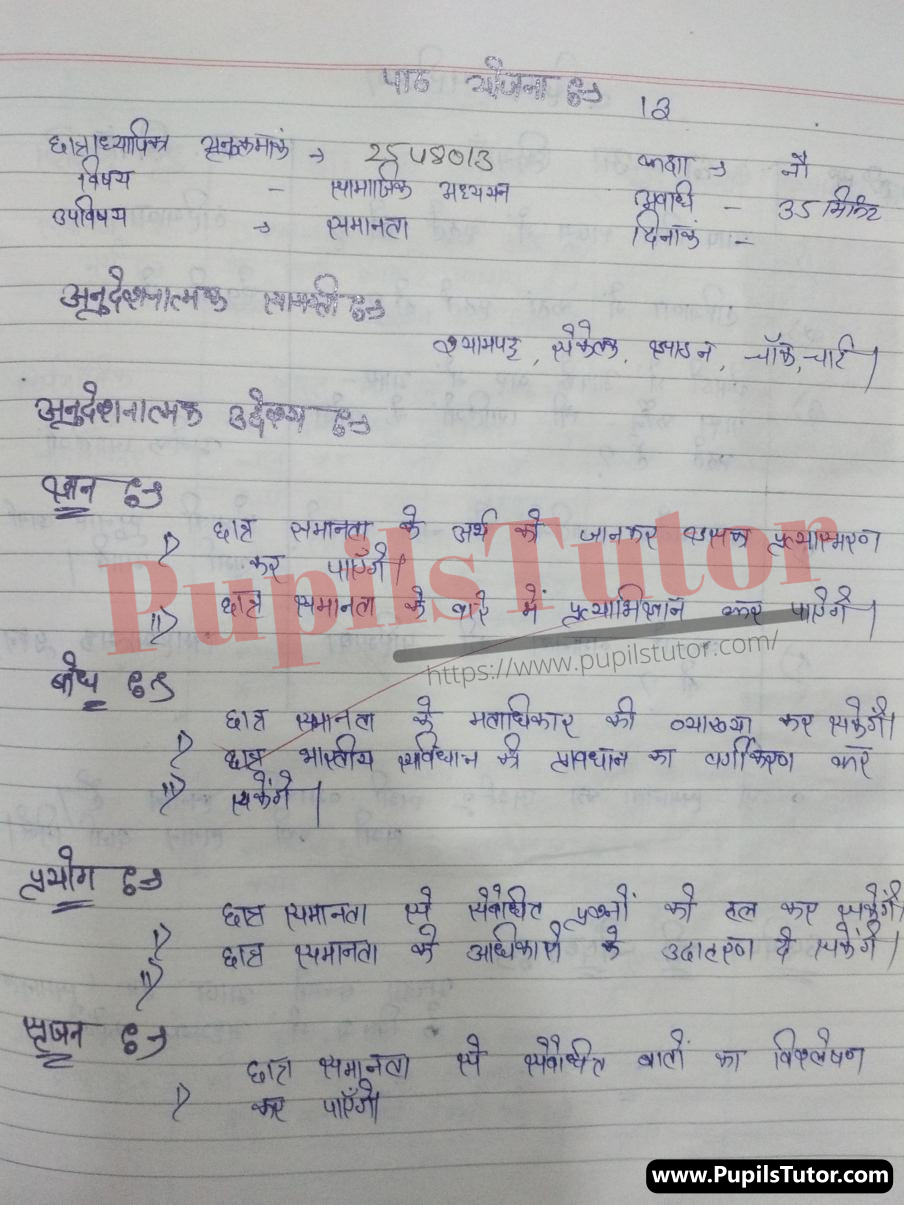 पाठ योजना ⇒ 13
छात्राध्यापिका अनुक्रमांक → 2548013 कक्षा → नौ
विषय - सामाजिक अध्ययन अवधि - 35 मिनट
उपविषय → समानता दिनांक -
अनुदेशनात्मक सामग्री ⇒
श्यामपट्ट, संकेतक, झाडन, चॉक, चार्ट।
अनुदेशनात्मक उद्देश्य ⇒
ज्ञान ⇒
i) छात्र समानता के अर्थ को जानकर उसका प्रत्यास्मरण
कर पाएँगे।
ii) छात्र समानता के बारे में प्रत्याभिज्ञान कर पाएँगे।
PupilsTutor
https://www.pupilstutor.com/
बोध ⇒
i) छात्र समानता के मताधिकार की व्याख्या कर सकेंगे।
ii) छात्र भारतीय संविधान के प्रावधान का वर्गीकरण कर
सकेंगे।
प्रयोग ⇒
i) छात्र समानता से संबंधित प्रश्नों को हल कर सकेंगे।
ii) छात्र समानता के अधिकारों के उदाहरण दे सकेंगे।
सृजन ⇒
i) छात्र समानता से संबंधित बातों का विश्लेषण
कर पाएँगे।
www.PupilsTutor.com